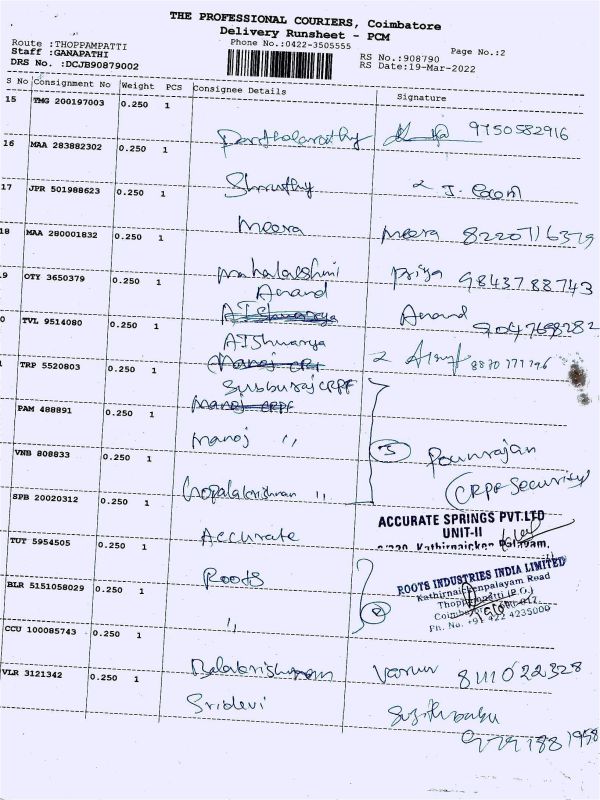 THE PROFESSIONAL COURIERS, Coimbatore
Delivery Runsheet - PCM
Route :THOPPAMPATTI Phone No.:0422-3505555 Page No.:2
Staff :GANAPATHI RS No.:908790
DRS No. :DCJB90879002 RS Date:19-Mar-2022
S No Consignment No Weight PCS Consignee Details Signature
15 TMG 200197003 0.250 1
9750582916
16 MAA 283882302 0.250 1
Shruthy
17 JPR 501988623 0.250 1
Meera Meera
18 MAA 280001832 0.250 1
Mahalakshmi Priya 9843788743
9 OTY 3650379 0.250 1
Anand Anand
Aishwarya
0 TVL 9514080 0.250 1
AIShwarya
Manoj CRPF
1 TRP 5520803 0.250 1
Subburaj CRPF
Manoj CRPF
PAM 488891 0.250 1
Manoj ,,
5 Pounrajan
VNB 808833 0.250 1
Gopalakrishnan ,, (CRPF Security)
SPB 20020312 0.250 1
Accurate
ACCURATE SPRINGS PVT.LTD
UNIT-II
TUT 5954505 0.250 1
Roots
ROOTS INDUSTRIES INDIA LIMITED
Kathirnaickenpalayam Road
Thoppampatti (P.O.)
Ph. No. +91 422 4235000
BLR 5151058029 0.250 1
,,
CCU 100085743 0.250 1
Balakrishnan Varun 8111022328
VLR 3121342 0.250 1
Sridevi Sujithbabu